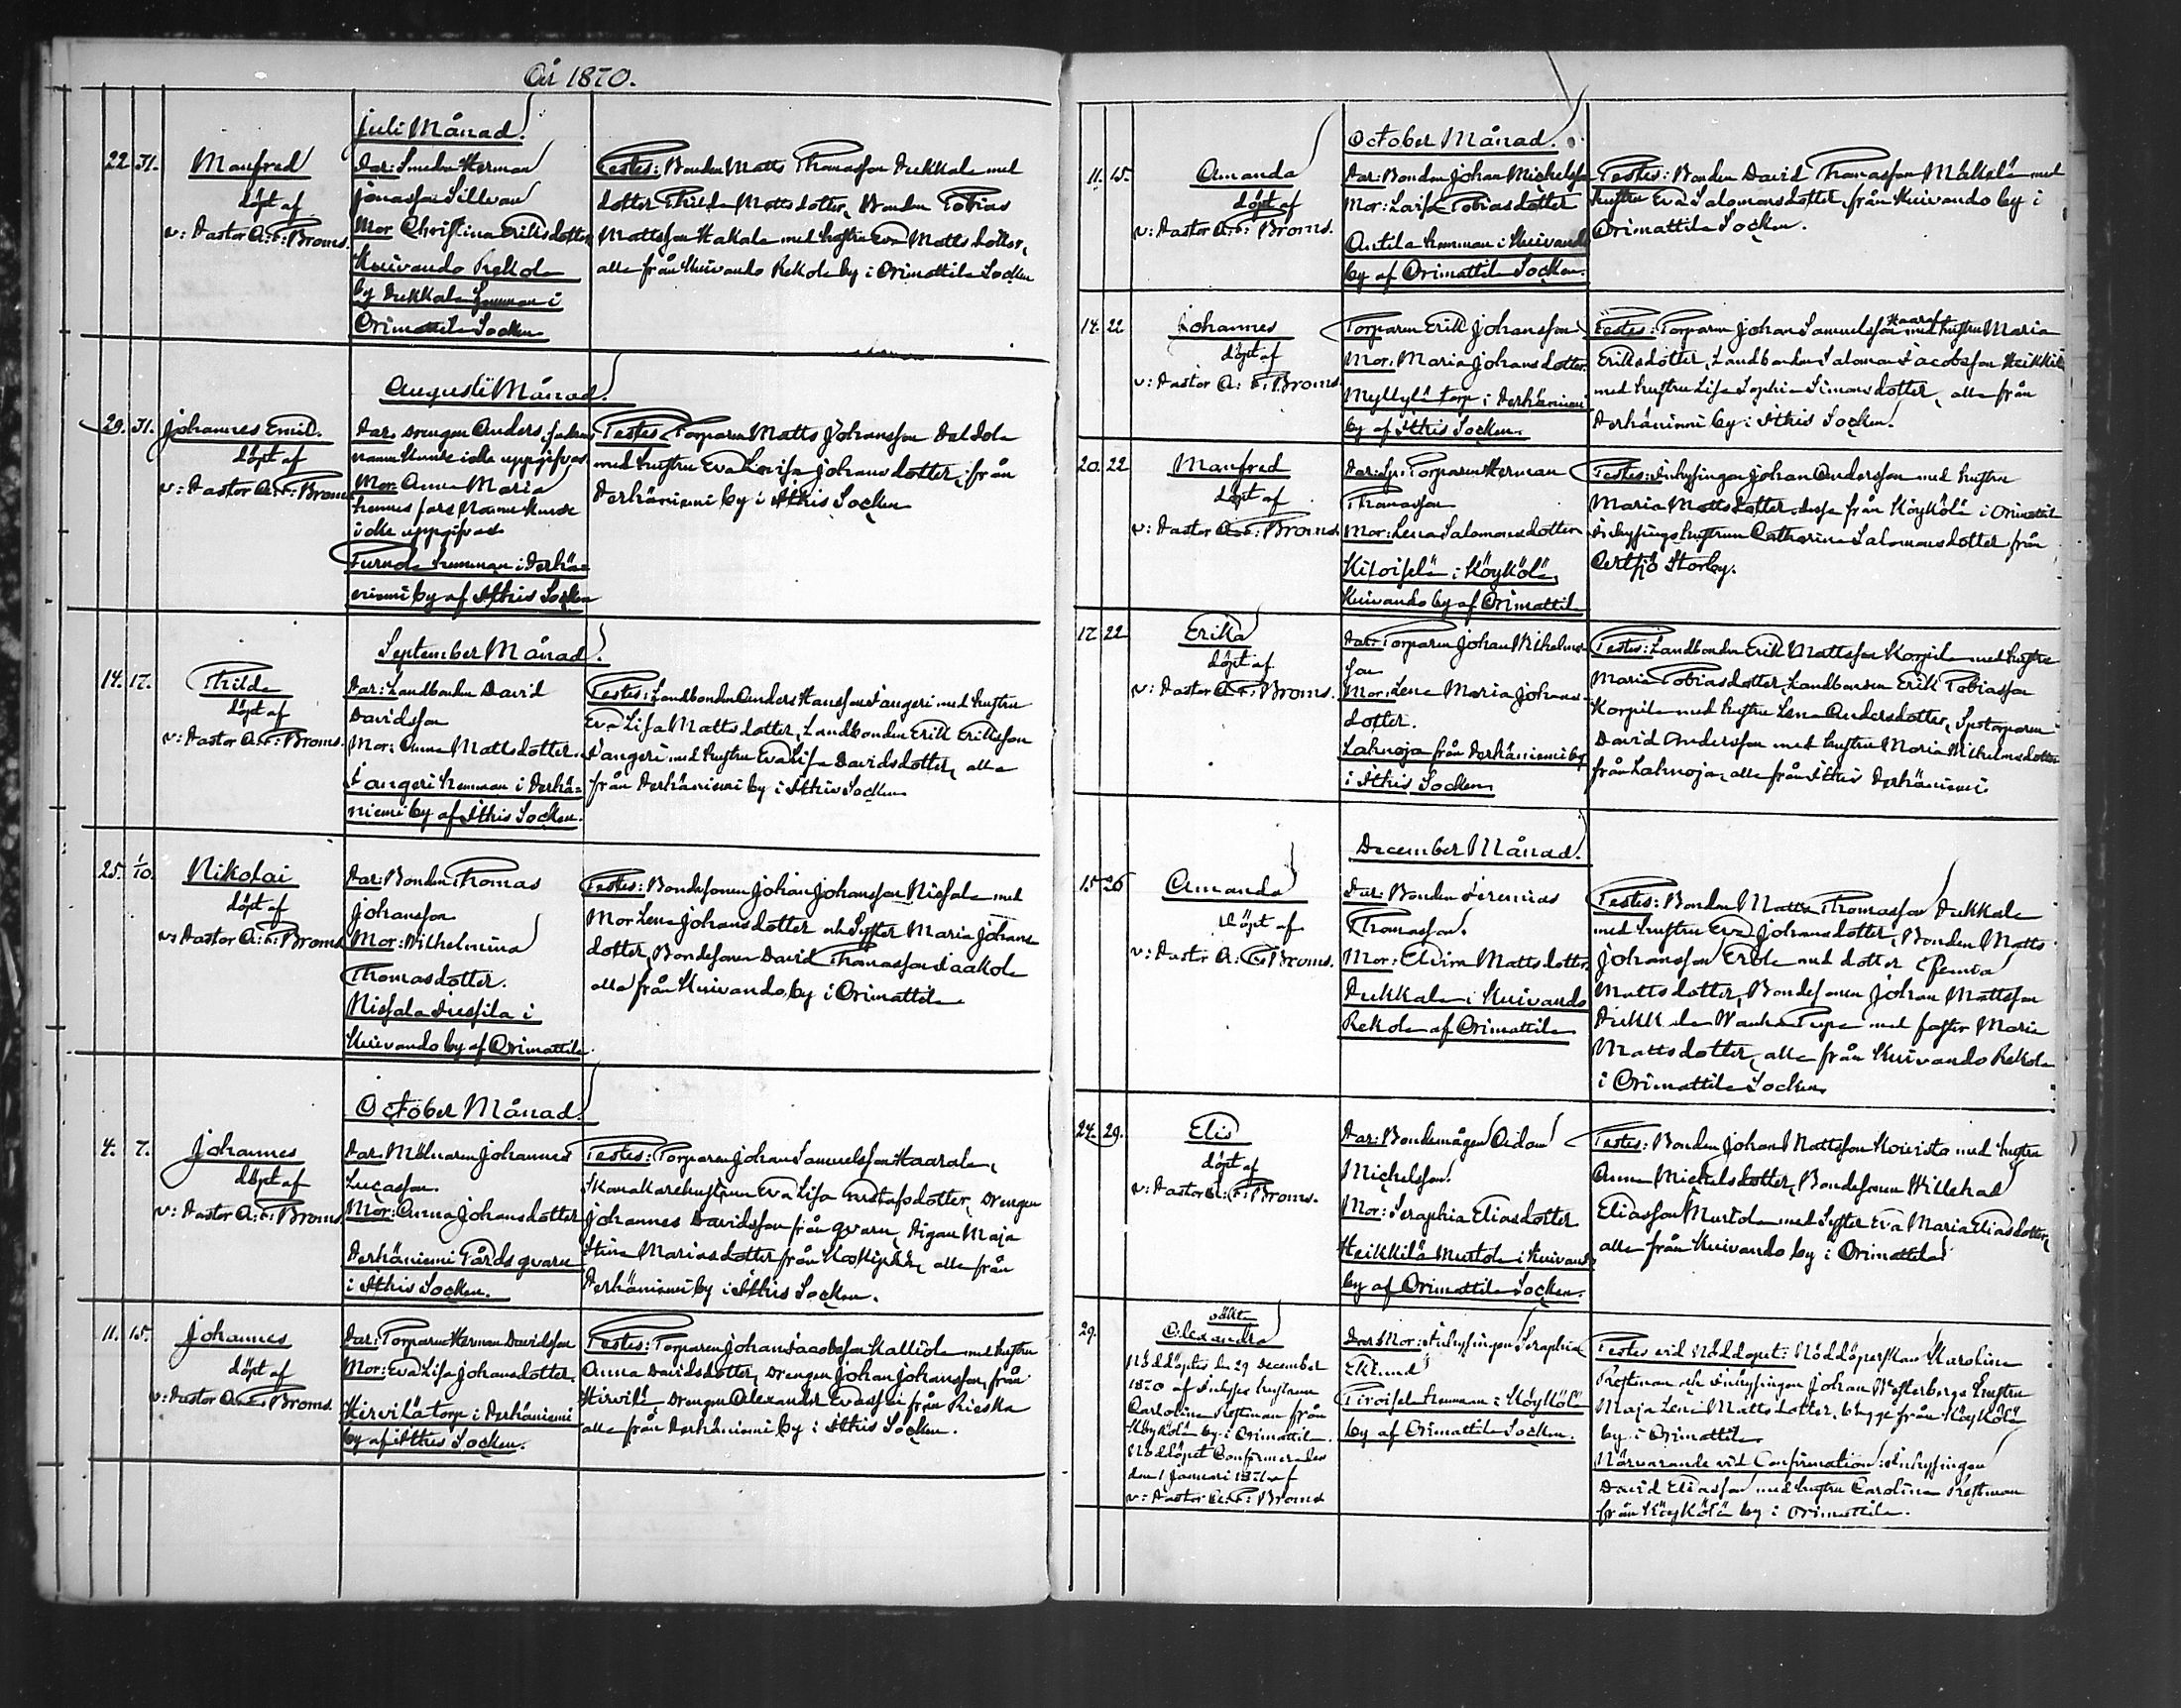 År 1870.
Juli Månad.
22 31. Manfred
döpt af
v: Pastor A: F: Broms.
Far: Smeden Herman
Jonasson Sillman
Mor Christina Eriksdotter
Kuivando Rekola
by Pukkala hemman i
Orimattila Socken
Testes: Bonden Matts Thomasson Pukkala med
dotter Thilda Mattsdotter, Bonden Tobias
Mattsson Hakala med hustru Eva Mattsdotter,
alla från Kuivando Rekola by i Orimattila Socken
Augusti Månad.
29. 31. Johannes Emil.
döpt af
v: Pastor A: F: Broms
Far, drengen Anders, faderns
namn kunde icke uppgifvas
Mor: Anna Maria
hennes fars Namn kunde
icke uppgifvas
hemman i Perhä=
niemi by af Ithis Socken
Testes Torparen Matts Johansson
med hustru Eva Lovisa Johansdotter, från
Perhäniemi by i Ithis Socken
September Månad.
14. 17. Thilda
döpt af
v: Pastor A: F: Broms.
Far: Landbonden David
Davidsson
Mor: Anna Mattsdotter.
Jangeri hemman i Perhä=
niemi by af Ithis Socken.
Testes: Landbonden Anders Hansson Jangeri med hustru
Eva Lisa Mattsdotter, Landbonden Erik Eriksson
Jangeri med hustru Eva Lisa Davidsdotter, alla
från Perhäniemi by i Ithis Socken
25. 1/10. Nikolai
döpt af
v: Pastor A: F: Broms
Far: Bonden Thomas
Johansson
Mor: Wilhelmina
Thomasdotter.
i
Kuivando by af Orimattila.
Testes: Bondesonen Johan Johansson med
Mor Lena Johansdotter och Syster Maria Johans
dotter, Bondesonen David Thomasson Jaakola
alla från Kuivando by i Orimattila
October Månad.
4. 7. Johannes
döpt af
v: Pastor A: F: Broms.
Far: Mölnaren Johannes
Lucasson.
Mor: Anna Johansdotter
Perhäniemi Gårds qvarn
i Ithis Socken.
Testes: Torparen Johan Samuelsson Haarala,
Skomakarehustrun Eva Lisa Gustafsdotter, Drengen
Johannes Davidsson från qvarn, Pigan Maja
Stina Mariasdotter från alla från
Perhäniemi by i Ithis Socken.
11. 15. Johannes
döpt af
v: Pastor A: F: Broms.
Far: Torparen Herman Davidsson
Mor: Eva Lisa Johansdotter.
Hirvilä torp i Perhäniemi
by af Ithis Socken.
Testes: Torparen Johan Jacobsson Kalliola med hustru
Anna Davidsdotter, Drengen Johan Johansson, från
Hirvilä Drengen Alexander Evasson från Rieska
alla från Perhäniemi by i Ithis Socken.
October Månad.
11. 15. Amanda
döpt af
v: Pastor A: F: Broms.
Far: Bonden Johan Michelsson
Mor: Lovisa Tobiasdotter
Antila hemman i Kuivando
by af Orimattila Socken.
Testes: Bonden David Thomasson Mäkelä med
hustru Eva Salomonsdotter, från Kuivando by i
Orimattila Socken.
14. 22 Johannes
döpt af
v: Pastor A: F: Broms.
Torparen Erik Johansson
Mor: Maria Johansdotter.
Myllylä torp i Perhäniemi
by af Ithis Socken.
Testes: Torparen Johan Samuelsson Haarala med hustru Maria
Eriksdotter, Landbonden Salomon Jacobsson Heikkilä
med hustru Lisa Sophia Simonsdotter, alla från
Perhäniemi by i Ithis Socken.
20. 22 Manfred
döpt af
v: Pastor A: F: Broms.
Far: Torparen Herman
Thomasson
Mor: Lena Salomonsdotter
i Köykölä
Kuivando by af Orimattila
Testes: Inhysingen Johan Andersson med hustru
Maria Mattsdotter, dessa från Köykölä i Orimattila
Inhysings hustrun Catharina Salomonsdotter från
Artsjö Storby.
17. 22 Erika
döpt af
v: Pastor A: F: Broms.
Far: Torparen Johan Wilhelms-
son
Mor: Lena Maria Johans-
dotter.
Lahnoja från Perhäniemi by
i Ithis Socken
Testes: Landbonden Erik Mattsson Korpila med hustru
Maria Tobiasdotter, Landbonden Erik Tobiasson
Korpila med hustru Lena Andersdotter, Sp: torparen
David Andersson med hustru Maria Wilhelmsdotter
från Lahnoja, alla från Ithis Perhäniemi
December Månad.
15 26 Amanda
döpt af
v: Pastor A: F: Broms.
Far: Bonden Jeremias
Thomasson.
Mor: Elvira Mattsdotter.
Pukkala i Kuivando
Rekola af Orimattila
Testes: Bonden Matts Thomasson Pukkala
med hustru Eva Johansdotter, Bonden Matts
Johansson Erola med dotter
Mattsdotter, Bondesonen Johan Mattsson
Pukkala med faster Maria
Mattsdotter, alla från Kuivando Rekola
i Orimattila Socken
24. 29. Elis
döpt af
v: Pastor A: F: Broms.
Far: Bondemågen Adam
Michelsson
Mor: Seraphia Eliasdotter
Heikkilä Murtola i Kuivando
by af Orimattila Socken.
Testes: Bonden Johan Mattsson Koivisto med hustru
Anna Michelsdotter, Bondesonen Willehad
Eliasson Murtola med Syster Eva Maria Eliasdotter,
alla från Kuivando by i Orimattila.
29. oäkta
Alexandra
Nöddöptes den 29 December
1870 af Inhyses hustrun
Carolina Prestman från
Köykölä by i Orimattila.
Nöddopet Confirmerades
den 1 Januari 1871 af
v: Pastor A: F: Broms
Far Mor: Inhysingen Seraphia
Eklund
hemman i Köykölä
by af Orimattila Socken.
Testes vid Nöddopet: Nöddöperskan Karolina
Prestman och Inhysingen Johan Westerbergs hustru
Maja Lena Mattsdotter, bägge från Köykölä
by i Orimattila
Närvarande vid Confirmation: Inhysingen
David Eliasson med hustru Carolina Prestman
från Köykölä by i Orimattila.